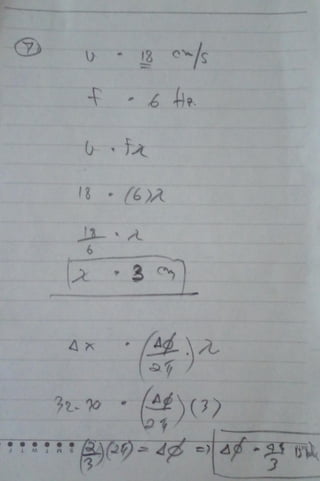 7
v = 18 cm/s
f = 6 Hz.
v = fλ
18 = (6)λ
18/6 = λ
λ = 3 cm
Δx = (Δφ/2π) λ
32-30 = (Δφ/2π)(3)
(2/3)(2π) = Δφ => Δφ = 4π/3